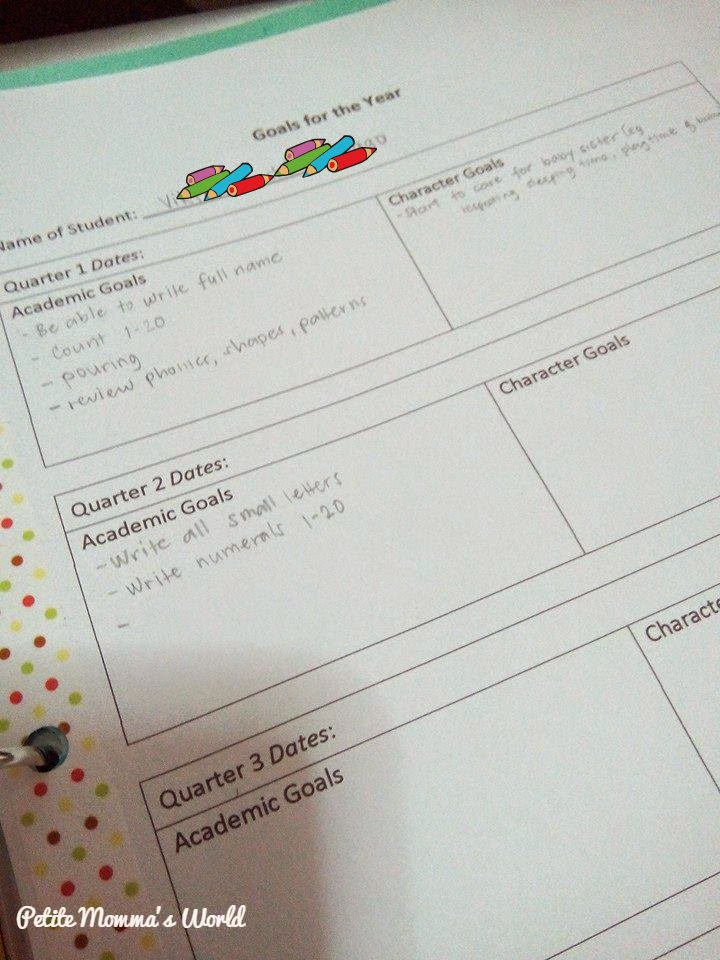 Goals for the Year
Name of Student:
Quarter 1 Dates:
Academic Goals
- Be able to write full name
- Count 1-20
- pouring
- review phonics, shapes, patterns
Character Goals
- Start to care for baby sister (eg
respecting sleeping time, playtime &
Quarter 2 Dates:
Academic Goals
- Write all small letters
- Write numerals 1-20
-
Character Goals
Quarter 3 Dates:
Academic Goals
Characte
Petite Momma's World